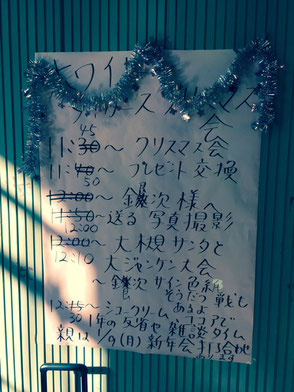 ホワイト
タイガース クリスマス
会
45
11:30～ クリスマス会
11:40～ プレゼント交換
50
12:00～ 鐵次様へ
11:50～送る 写真撮影
12:00
12:00～ 大槻サンタと
12:10 大ジャンケン大会
～鐵次サイン色紙
そうだつ戦もし
あるよ
12:15～ シュークリーム、ココアで
30 1年の反省や雑談タイム
親は 1/9(月)新年会打ち合わせ